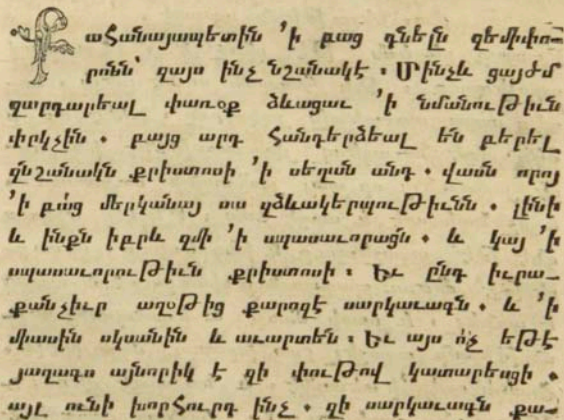 Քահանայապետին ՚ի բաց դնելն զեմիփո֊
րոնն՝ զայս ինչ նշանակէ ։ Մինչև ցայժմ
զարդարեալ փառօք ձևացաւ ՚ի նմանութիւն
փրկչին . բայց արդ հանդերձեալ են բերել
զնշանակն քրիստոսի ՚ի սեղան անդ . վասն որոյ
՚ի բա՛ց մերկանայ սա զձևակերպութիւնն . լինի
և ինքն իբրև զմի ՚ի սպասաւորացն . և կայ ՚ի
սպասաւորութիւն քրիստոսի ։ Եւ ընդ իւրա֊
քանչիւր աղօթից քարոզէ սարկաւագն . և ՚ի
միասին սկսանին և աւարտեն ։ Եւ այս ո՛չ եթէ
յաղագս այնորիկ է զի փութով կատարեսցի .
այլ ունի խորհուրդ ինչ . զի սարկաւագն քա֊